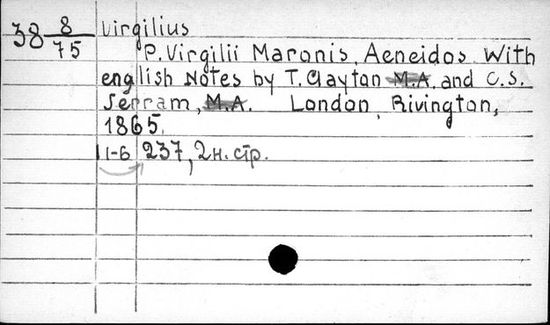 38 8/75 Virgilius
P. Virgilii Maronis, Aeneidos. With
english Notes by T. Clayton M.A. and C.S.
Jerram, M.A. London, Rivington,
1865.
1-6 237, 2 н. стр.